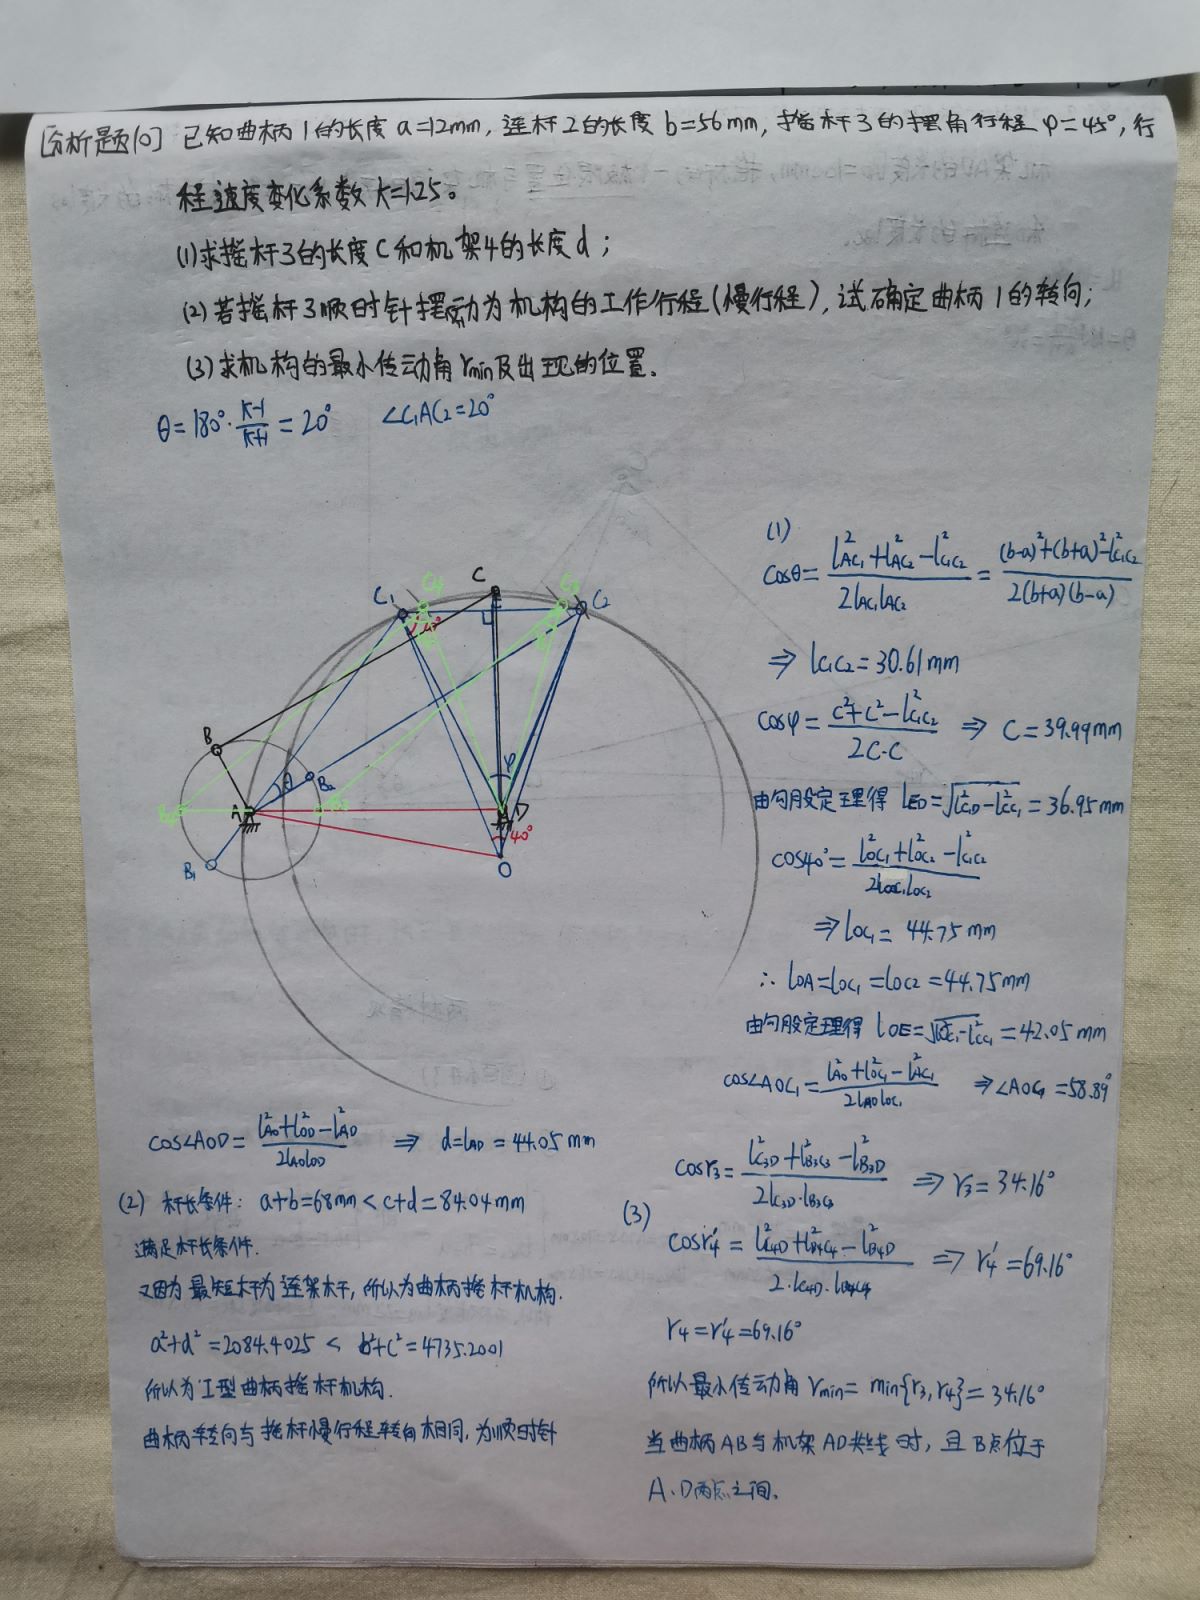 [分析题10] 已知曲柄1的长度 a=12mm, 连杆2的长度 b=56mm, 摇杆3的摆角行程 φ=45°, 行
程速度变化系数 K=1.25。
(1)求摇杆3的长度C和机架4的长度d;
(2)若摇杆3顺时针摆动为机构的工作行程(慢行程), 试确定曲柄1的转向;
(3)求机构的最小传动角γmin及出现的位置。
θ=180°·(K-1)/(K+1)=20° ∠C₁AC₂=20°
C₁ C₄ C C₃ C₂
40°
B
θ B₂ φ
A D
40°
B₁
O
(1)
cosθ=(l²AC₁+l²AC₂-l²C₁C₂)/(2lAC₁lAC₂)=((b-a)²+(b+a)²-l²C₁C₂)/(2(b+a)(b-a))
⇒ lC₁C₂=30.61mm
cosφ=(C²+C²-l²C₁C₂)/(2C·C) ⇒ C=39.99mm
由勾股定理得 lED=√(l²C₁D-l²CC₁)=36.95mm
cos40°=(l²OC₁+l²OC₂-l²C₁C₂)/(2lOC₁lOC₂)
⇒lOC₁=44.75mm
∴ lOA=lOC₁=lOC₂=44.75mm
由勾股定理得 lOE=√(l²OC₁-l²CC₁)=42.05mm
cos∠AOC₁=(l²AO+l²OC₁-l²AC₁)/(2lAOlOC₁) ⇒∠AOC₁=58.89°
cos∠AOD=(l²AO+l²OD-l²AD)/(2lAOlOD) ⇒ d=lAD=44.05mm
(2) 杆长条件: a+b=68mm<c+d=84.04mm
满足杆长条件.
又因为最短杆为连架杆, 所以为曲柄摇杆机构.
a²+d²=2084.4025 < b²+c²=4735.2001
所以为I型曲柄摇杆机构.
曲柄转向与摇杆慢行程转向相同, 为顺时针
(3)
cosγ₃=(l²C₃D+l²B₃C₃-l²B₃D)/(2lC₃D·lB₃C₃) ⇒γ₃=34.16°
cosγ₄'=(l²C₄D+l²B₄C₄-l²B₄D)/(2·lC₄D·lB₄C₄) ⇒γ₄'=69.16°
γ₄=γ₄'=69.16°
所以最小传动角γmin=min{γ₃,γ₄}=34.16°
当曲柄AB与机架AD共线时, 且B点位于
A、D两点之间.